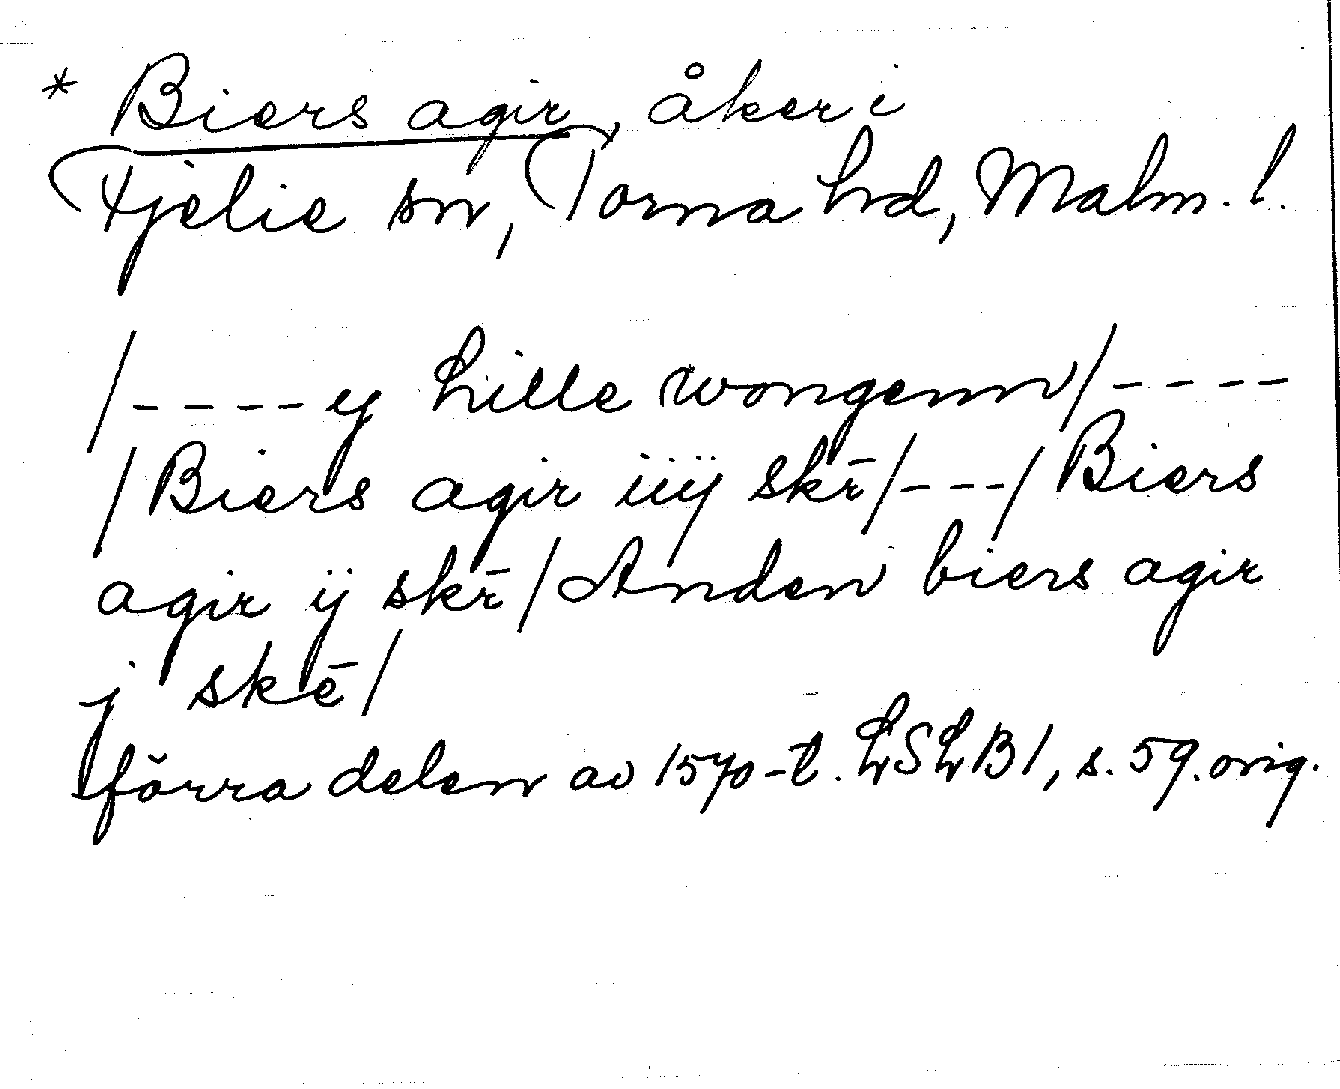 * Biers agir, åker i
Fjelie sn, Torna hd, Malm. l.
/ - - - - y hille wongenn / - - - -
/ Biers agir iiij skr̄ / - - - / Biers
agir ij skr̄ / Anden biers agir
j skē /
förra delen av 1570-t. LSLB1, s. 59. orig.